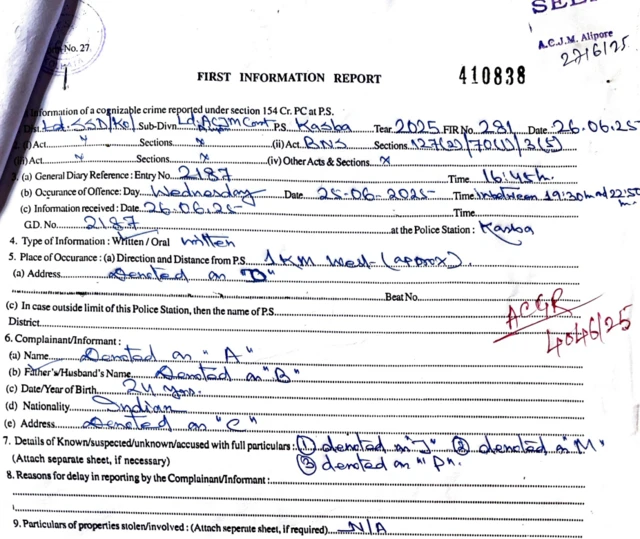 A.C.J.M. Alipore
27/6/25
No. 27
FIRST INFORMATION REPORT 410838
Information of a cognizable crime reported under section 154 Cr. PC at P.S.
Ld. SSD/Kol Sub-Divn. Ld. ACJM Court P.S. Kasba Year 2025 FIR No. 281 Date 26.06.25
Act Sections x (ii) Act. BNS Sections 127(2)/70(1)/3(5)
Act x Sections x (iv) Other Acts & Sections x
(a) General Diary Reference : Entry No. 2187 Time 16:45h.
(b) Occurance of Offence : Day Wednesday Date 25-06-2025 Time In between 19:30h and
(c) Information received : Date 26.06.25 Time
G.D. No. 2187 at the Police Station : Kasba
4. Type of Information : Written / Oral written
5. Place of Occurance : (a) Direction and Distance from P.S. 1 KM West (approx)
(a) Address Denoted as "D"
Beat No.
(c) In case outside limit of this Police Station, then the name of P.S.
District
ACGR
4046/25
6. Complainant/Informant :
(a) Name Denoted as "A"
(b) Father's/Husband's Name Denoted as "B"
(c) Date/Year of Birth 24 yrs.
(d) Nationality Indian
(e) Address Denoted as "C"
7. Details of Known/suspected/unknown/accused with full particulars : ① denoted as "J" ② denoted as "M"
(Attach separate sheet, if necessary) ③ denoted as "P".
8. Reasons for delay in reporting by the Complainant/Informant :
9. Particulars of properties stolen/involved : (Attach seperate sheet, if required) N/A